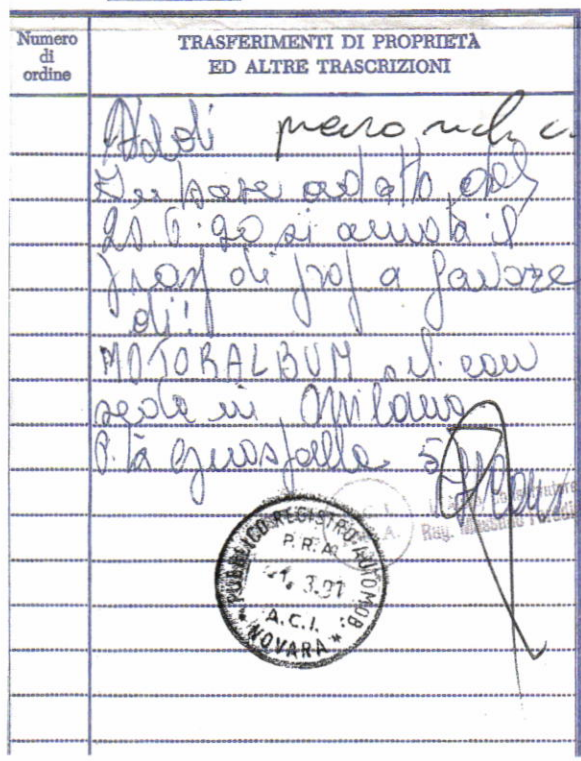 Numero
di
ordine
TRASFERIMENTI DI PROPRIETÀ
ED ALTRE TRASCRIZIONI
Addì
In base ad atto del
si annota il
trasf di prop a favore
di:
MOTORALBUM srl con
sede in Milano
P.za Guastalla 5
PUBBLICO REGISTRO AUTOMOB.
P.R.A.
3.91
A.C.I.
* NOVARA *
Rag.